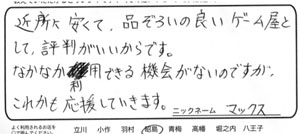 近所に安くて、品ぞろいの良いゲーム屋と
して、評判がいいからです。
なかなか利用できる機会がないのですが、
これからも応援していきます。
ニックネーム マックス
よく利用されるお店を
立川 小作 羽村 昭島 青梅 高幡 堀之内 八王子